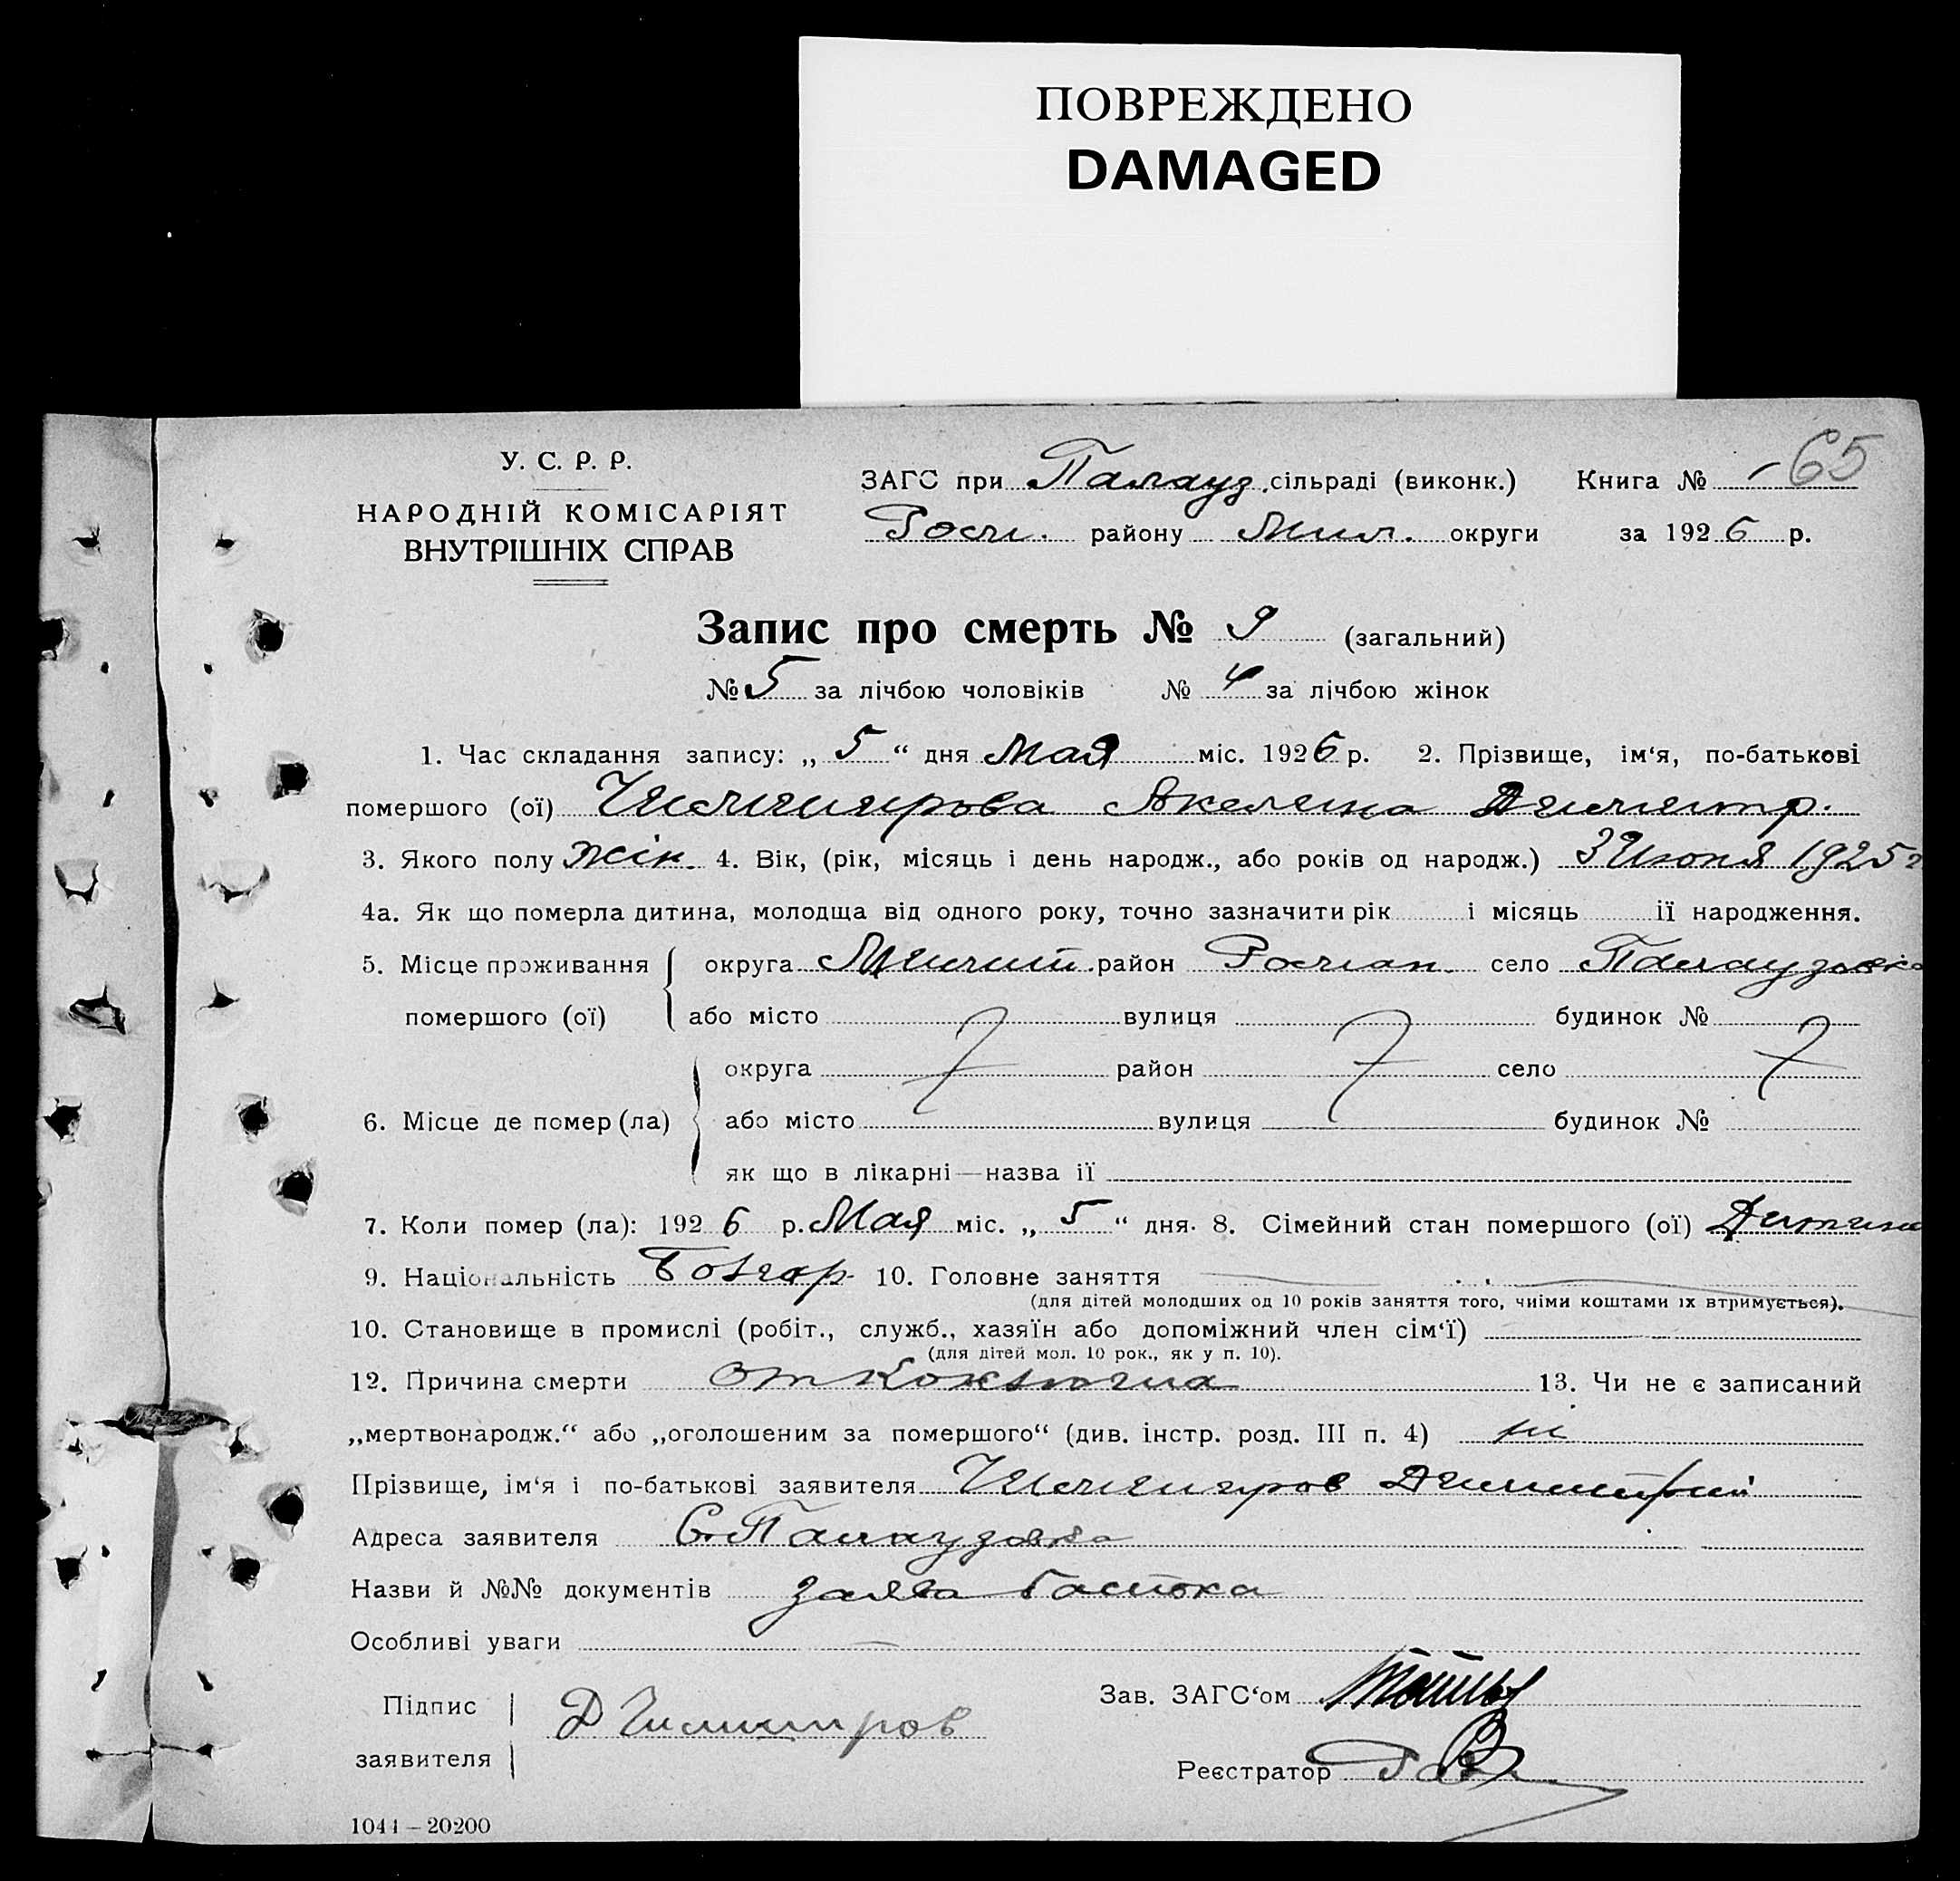 ПОВРЕЖДЕНО
DAMAGED
У. С. Р. Р.
НАРОДНІЙ КОМІСАРІЯТ
ВНУТРІШНІХ СПРАВ
ЗАГС при Палауз. сільраді (виконк.) Книга № 65
району округи за 1926 р.
Запис про смерть № 9 (загальний)
№ 5 за лічбою чоловіків № 4 за лічбою жінок
1. Час складання запису: „ 5 “ дня Мая міс. 1926 р. 2. Прізвище, ім‘я, по-батькові
помершого (ої)
3. Якого полу Жін. 4. Вік, (рік, місяць і день народж., або років од народж.) 3 Июня 1925 г
4а. Як що померла дитина, молодща від одного року, точно зазначити рік і місяць її народження.
5. Місце проживання округа район село Палаузовка
помершого (ої) або місто вулиця будинок №
округа район село
6. Місце де помер (ла) або місто вулиця будинок №
як що в лікарні — назва її
7. Коли помер (ла): 1926 р. Мая міс. „ 5 “ дня. 8. Сімейний стан помершого (ої) Дитина
9. Національність Болгар. 10. Головне заняття
(для дітей молодших од 10 років заняття того, чиїми коштами їх втримується).
10. Становище в промислі (робіт., служб., хазяїн або допоміжний член сім‘ї)
(для дітей мол. 10 рок., як у п. 10).
12. Причина смерти от Коклюша 13. Чи не є записаний
„мертвонародж.“ або „оголошеним за помершого“ (див. інстр. розд. III п. 4) ні
Прізвище, ім‘я і по-батькові заявителя Димитрий
Адреса заявителя С. Палаузовка
Назви й №№ документів заява батька
Особливі уваги
Підпис
заявителя
Зав. ЗАГС‘ом
Реєстратор
1044 – 20200